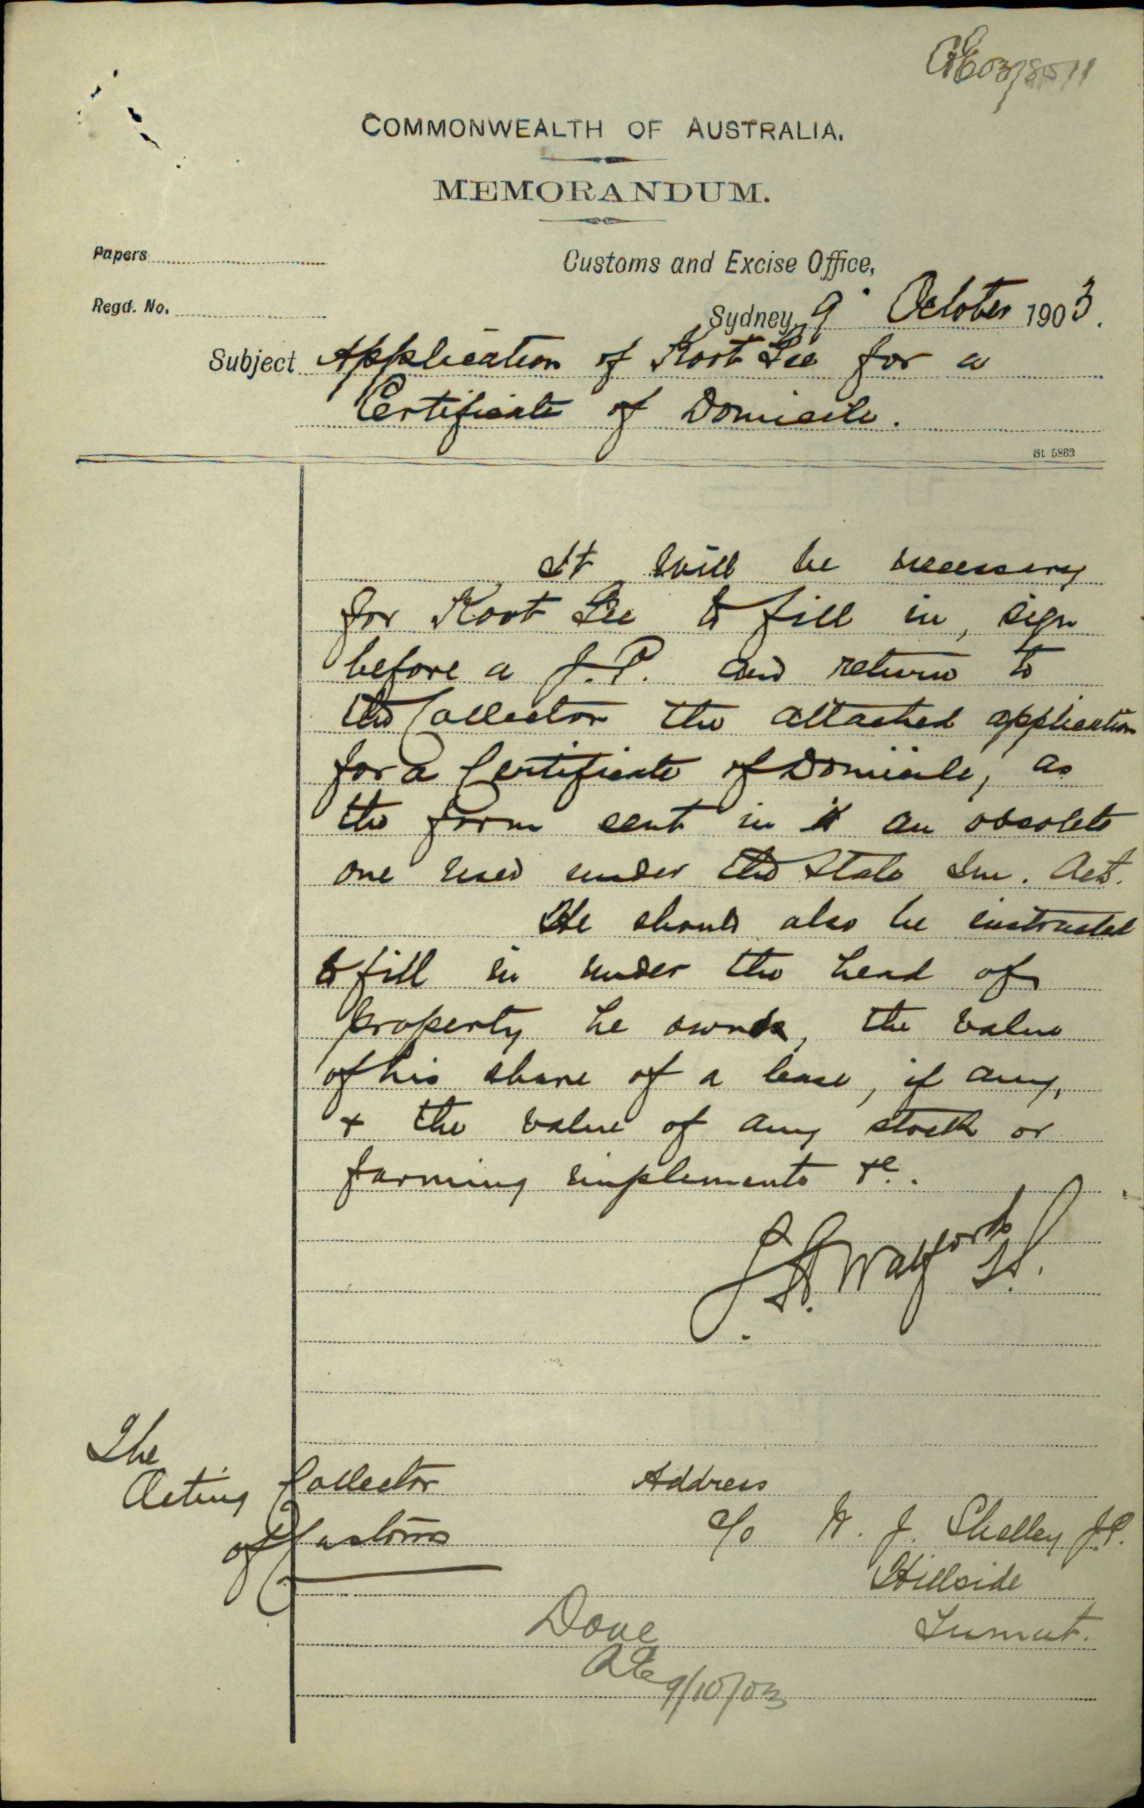 03/8511
COMMONWEALTH OF AUSTRALIA.
MEMORANDUM.
Papers
Customs and Excise Office,
Regd. No.
Sydney, 9 October 1903.
Subject Application of Koot Lee for a
Certificate of Domicile.
St. 5863
It will be necessary
for Koot Lee to fill in, sign
before a J.P. and return to
the Collector the attached application
for a Certificate of Domicile, as
the form sent in is an obsolete
one used under the State Im. Act.
He should also be instructed
to fill in under the head of
property he owns, the value
of his share of a lease, if any,
+ the value of any stock or
farming implements &c.
Walford
The
Acting Collector
of Customs
Address
c/o W. J. Shelley J.P.
Hillside
Tumut.
Done
9/10/03